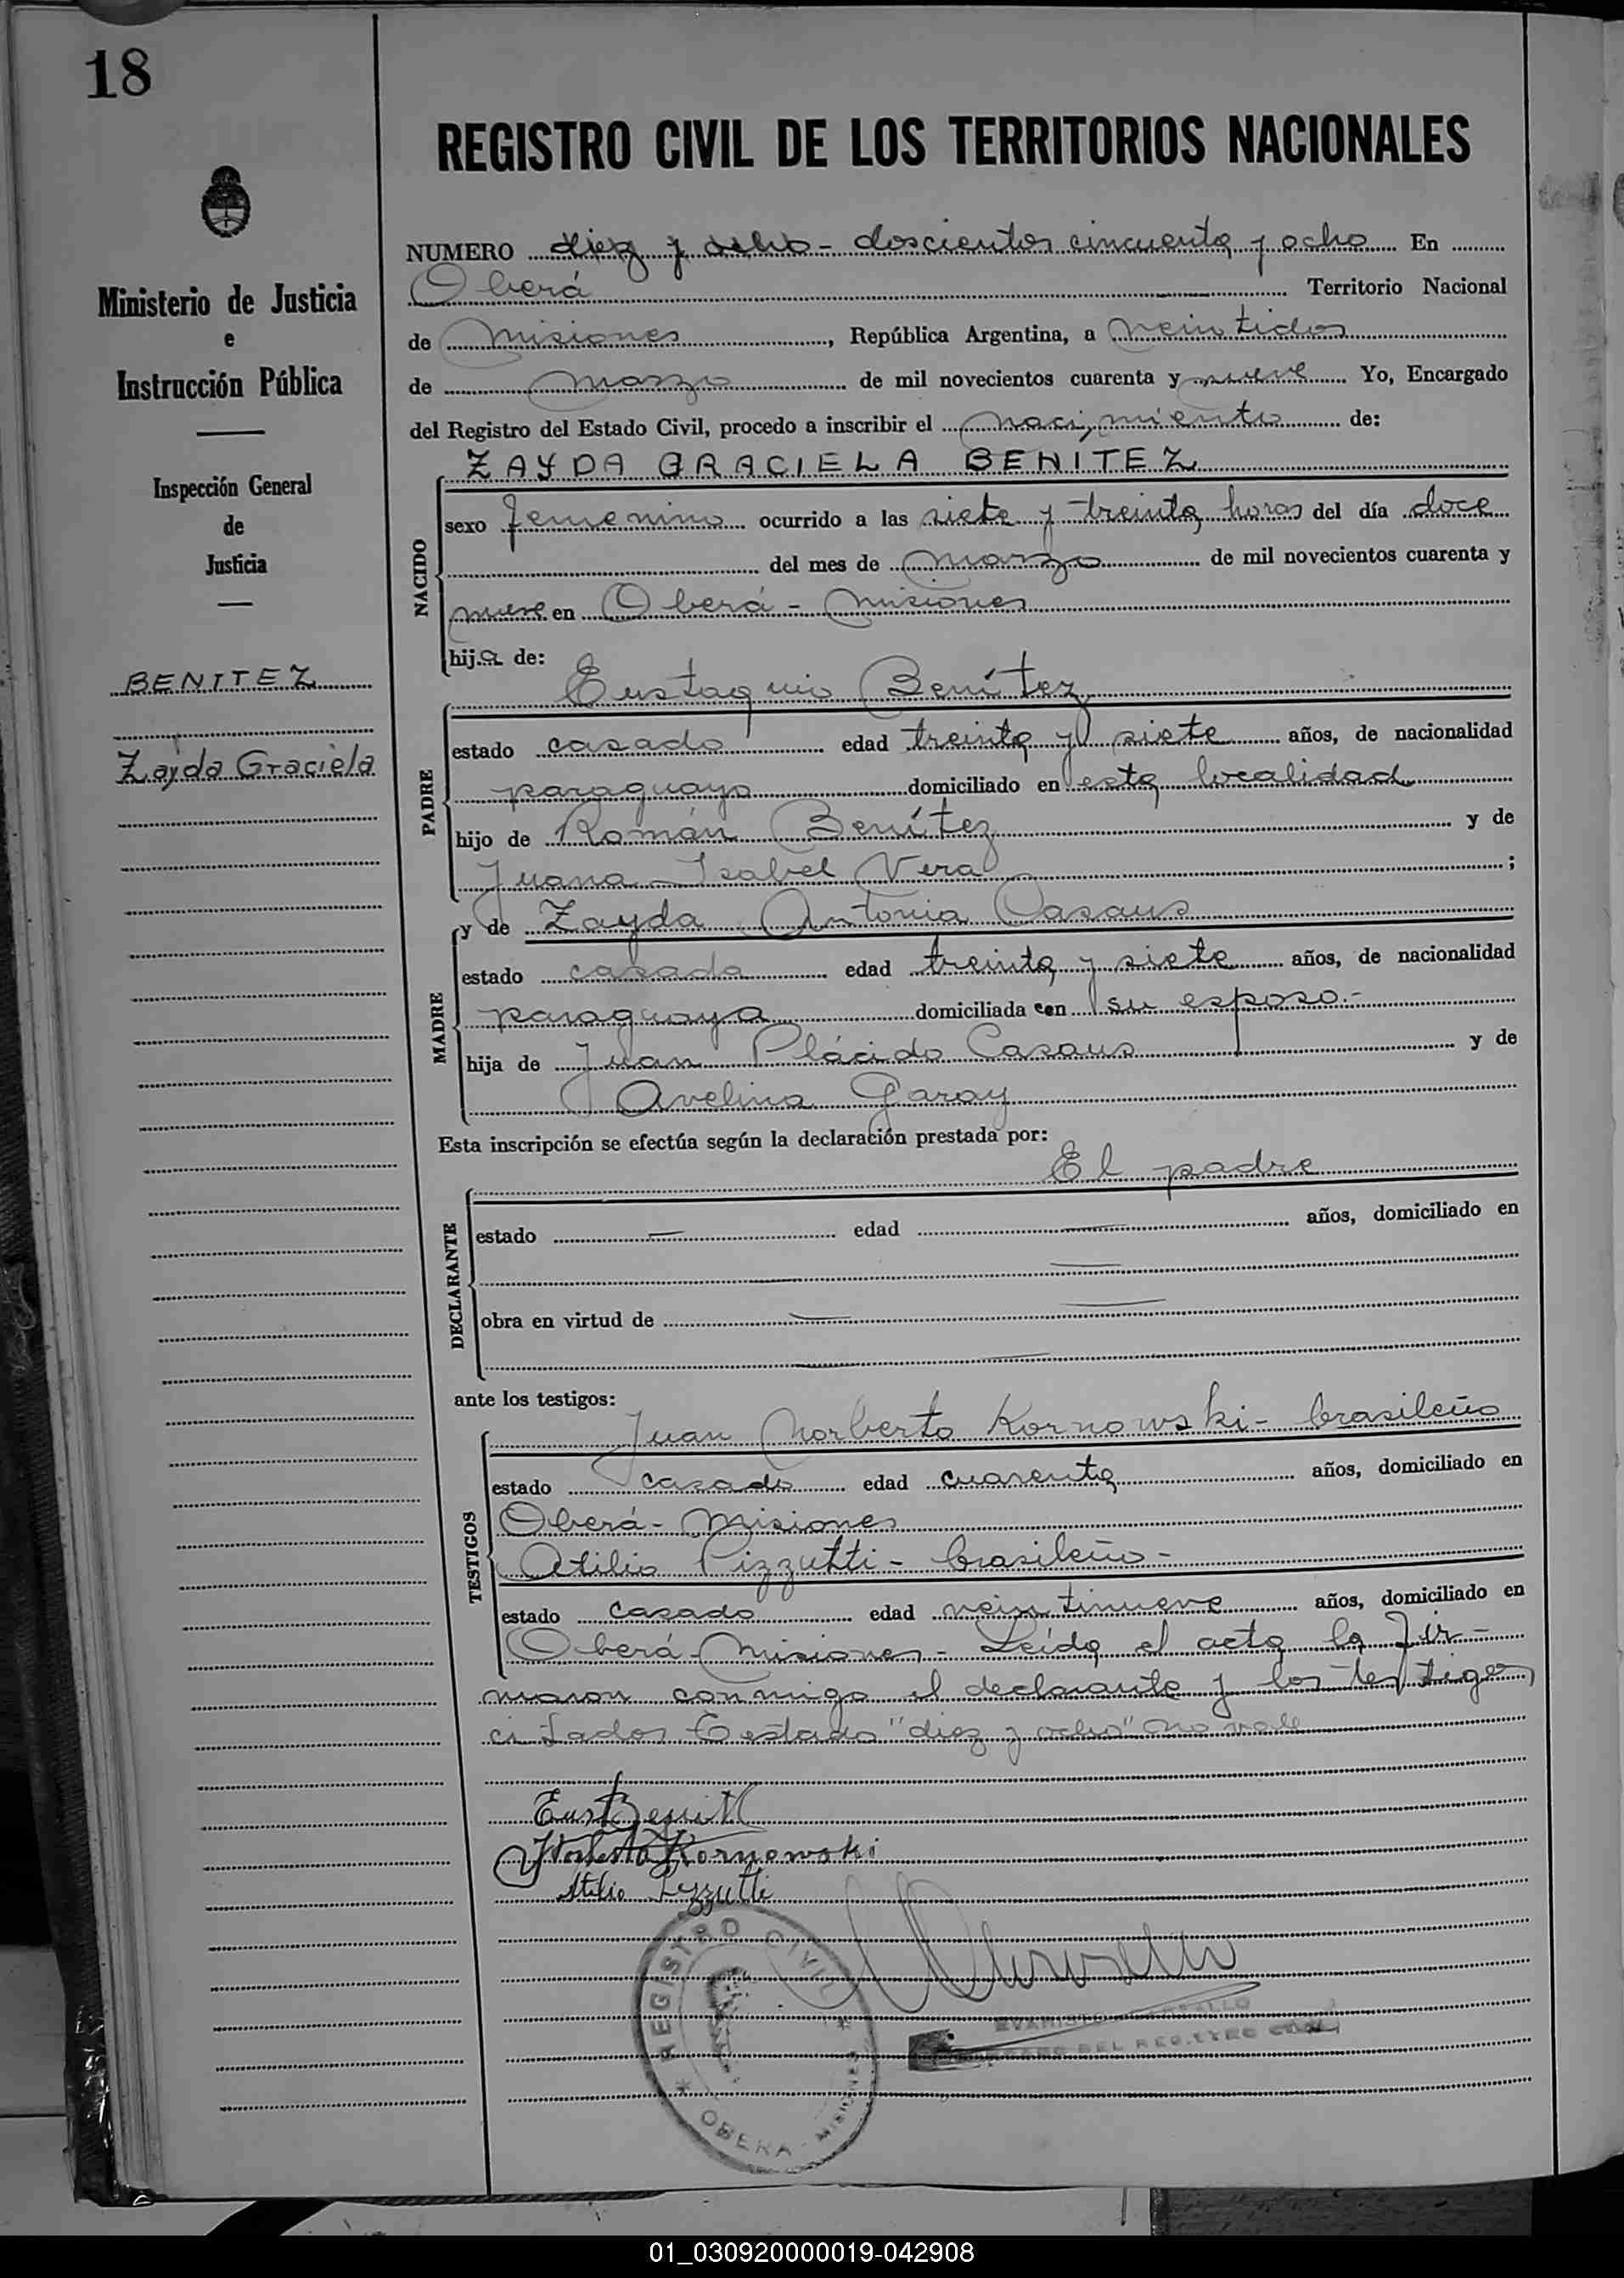 18
REGISTRO CIVIL DE LOS TERRITORIOS NACIONALES
Ministerio de Justicia
e
Instrucción Pública
Inspección General
de
Justicia
BENITEZ
Zayda Graciela
NUMERO diez y ocho - doscientos cincuenta y ocho En
Oberá Territorio Nacional
de Misiones, República Argentina, a veintidos
de marzo de mil novecientos cuarenta y nueve Yo, Encargado
del Registro del Estado Civil, procedo a inscribir el nacimiento de:
ZAYDA GRACIELA BENITEZ
NACIDO
sexo femenino ocurrido a las siete y treinta horas del día doce
del mes de marzo de mil novecientos cuarenta y
nueve en Oberá - Misiones
hija de:
Eustaquio Benítez
PADRE
estado casado edad treinta y siete años, de nacionalidad
paraguayo domiciliado en esta localidad
hijo de Román Benítez y de
Juana Isabel Vera ;
MADRE
y de Zayda Antonia Casaus
estado casada edad treinta y siete años, de nacionalidad
paraguaya domiciliada con su esposo.-
hija de Juan Plácido Casaus y de
Avelina Garay
Esta inscripción se efectúa según la declaración prestada por:
El padre
DECLARANTE
estado — edad — años, domiciliado en
obra en virtud de
ante los testigos:
Juan Norberto Kornowski - brasileño
TESTIGOS
estado casado edad cuarenta años, domiciliado en
Oberá - Misiones
Atilio Pizzutti - brasileño -
estado casado edad veintinueve años, domiciliado en
Oberá - Misiones - Leída el acta la fir-
maron conmigo el declarante y los testigos
citados. Testado "diez y ocho" no vale
Eust Benitez
JNorberto Kornowski
Atilio Pizzutti
REGISTRO CIVIL
OBERA - MISIONES
EVARISTO
DEL REGISTRO CIVIL
01_030920000019-042908